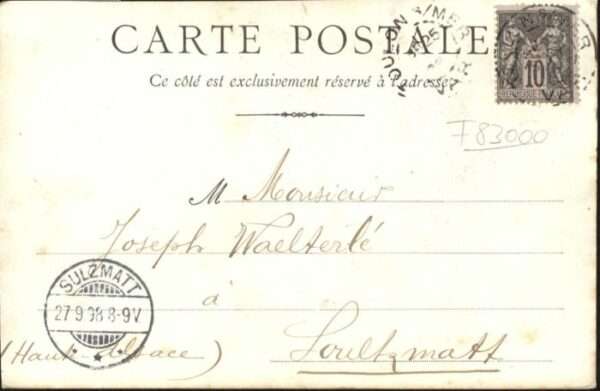 CARTE POSTALE
Ce côté est exclusivement réservé à l'adresse
TOULON S/MER
25
10
F83000
M Monsieur
Joseph Waelterlé
à
SULZMATT
27.9.98 8-9V
(Haute Alsace) Soultzmatt